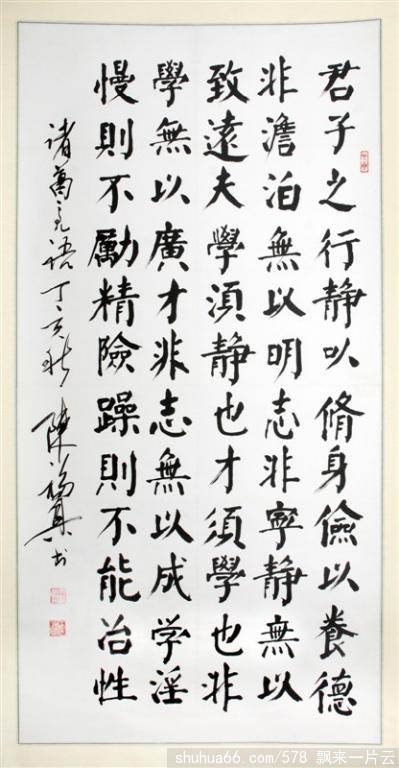 君子之行静以脩身儉以養德
非澹泊無以明志非寧静無以
致遠夫學須静也才須學也非
學無以廣才非志無以成学淫
慢則不勵精險躁則不能冶性
诸葛亮语丁亥秋 陳
书
shuhua66.com/578 飘来一片云